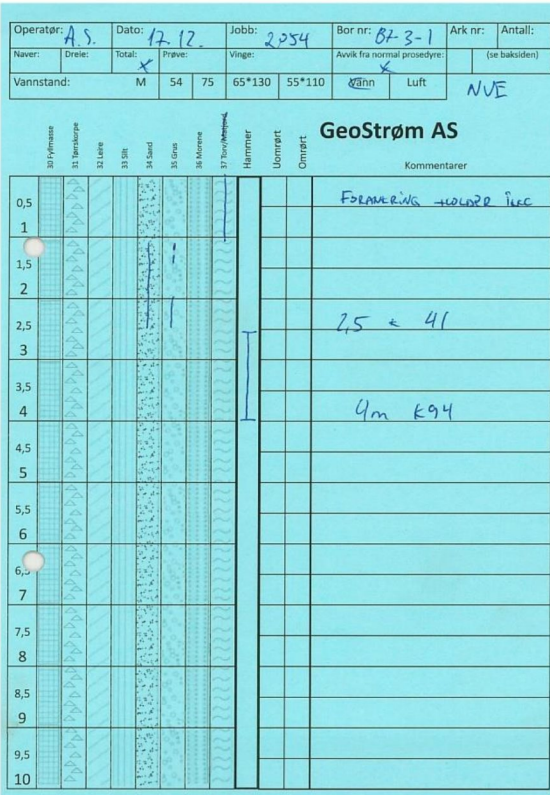 Operatør: A.S. Dato: 17.12. Jobb: 2054 Bor nr: B7-3-1 Ark nr: Antall:
Naver: Dreie: Total: X Prøve: Vinge: Avvik fra normal prosedyre: X (se baksiden)
Vannstand: M 54 75 65*130 55*110 Vann Luft NVE
30 Fyllmasse 31 Tørrskorpe 32 Leire 33 Silt 34 Sand 35 Grus 36 Morene 37 Torv/Matjord Hammer Uomrørt Omrørt
GeoStrøm AS
Kommentarer
0,5 FORANKRING HOLDER IKKE
1
1,5
2
2,5 2,5 41
3
3,5
4 4m K94
4,5
5
5,5
6
6,5
7
7,5
8
8,5
9
9,5
10